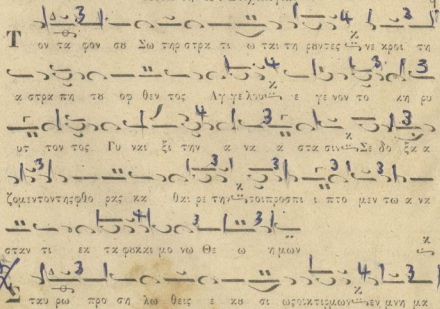 Τον τα φον σου Σω τηρ στρα τι ω ται τη ρουντες νε κροι τη
α στρα πη του οφ θεν τος Αγ γε λου ε γε νον το κη ρυ
υτ τον τος Γυ ναι ξι την α να στα σιν Σε δο ξα α
ζομεν τον της φθο ρας κα θαι ρε την σοι προσπι ι πτο μεν τω α να
σταν τι εκ τα φου και μο νω Θε ω η μων
Σταυ ρω προ ση λω θεις ε κου σι ως οικτιρμων εν μνη μα